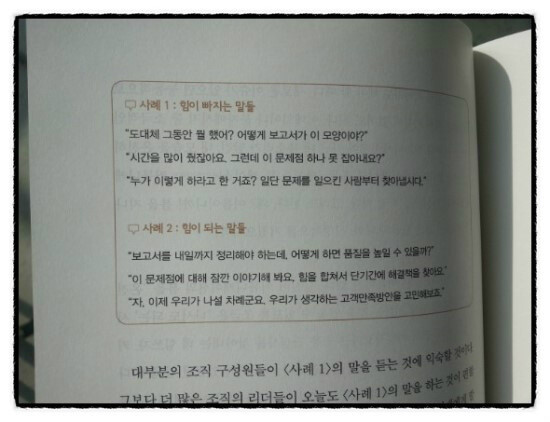 사례 1 : 힘이 빠지는 말들
"도대체 그동안 뭘 했어? 어떻게 보고서가 이 모양이야?"
"시간을 많이 줬잖아요. 그런데 이 문제점 하나 못 잡아내요?"
"누가 이렇게 하라고 한 거죠? 일단 문제를 일으킨 사람부터 찾아냅시다."
사례 2 : 힘이 되는 말들
"보고서를 내일까지 정리해야 하는데, 어떻게 하면 품질을 높일 수 있을까?"
"이 문제점에 대해 잠깐 이야기해 봐요. 힘을 합쳐서 단기간에 해결책을 찾아요."
"자, 이제 우리가 나설 차례군요. 우리가 생각하는 고객만족방안을 고민해보죠."
대부분의 조직 구성원들이 〈사례 1〉의 말을 듣는 것에 익숙할 것이다
그보다 더 많은 조직의 리더들이 오늘도 〈사례 1〉의 말을 하는 것이